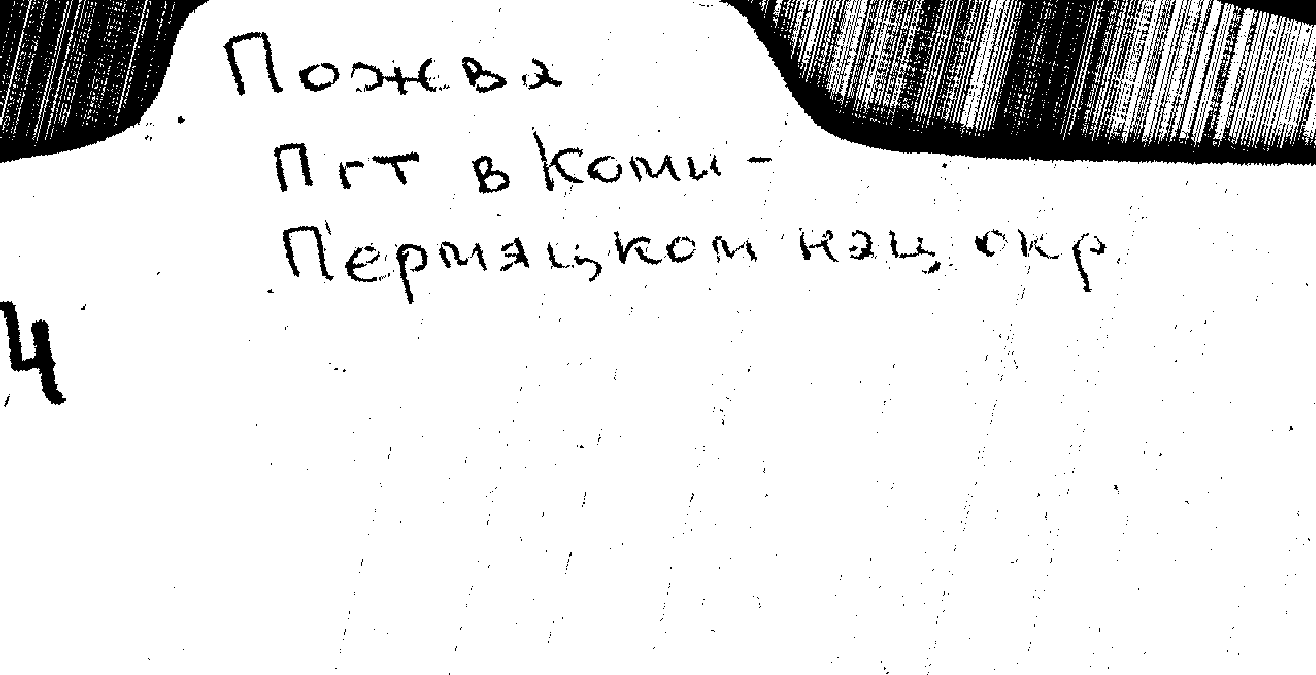 Пожва
Пгт в Коми-
Пермяцком нац окр
4